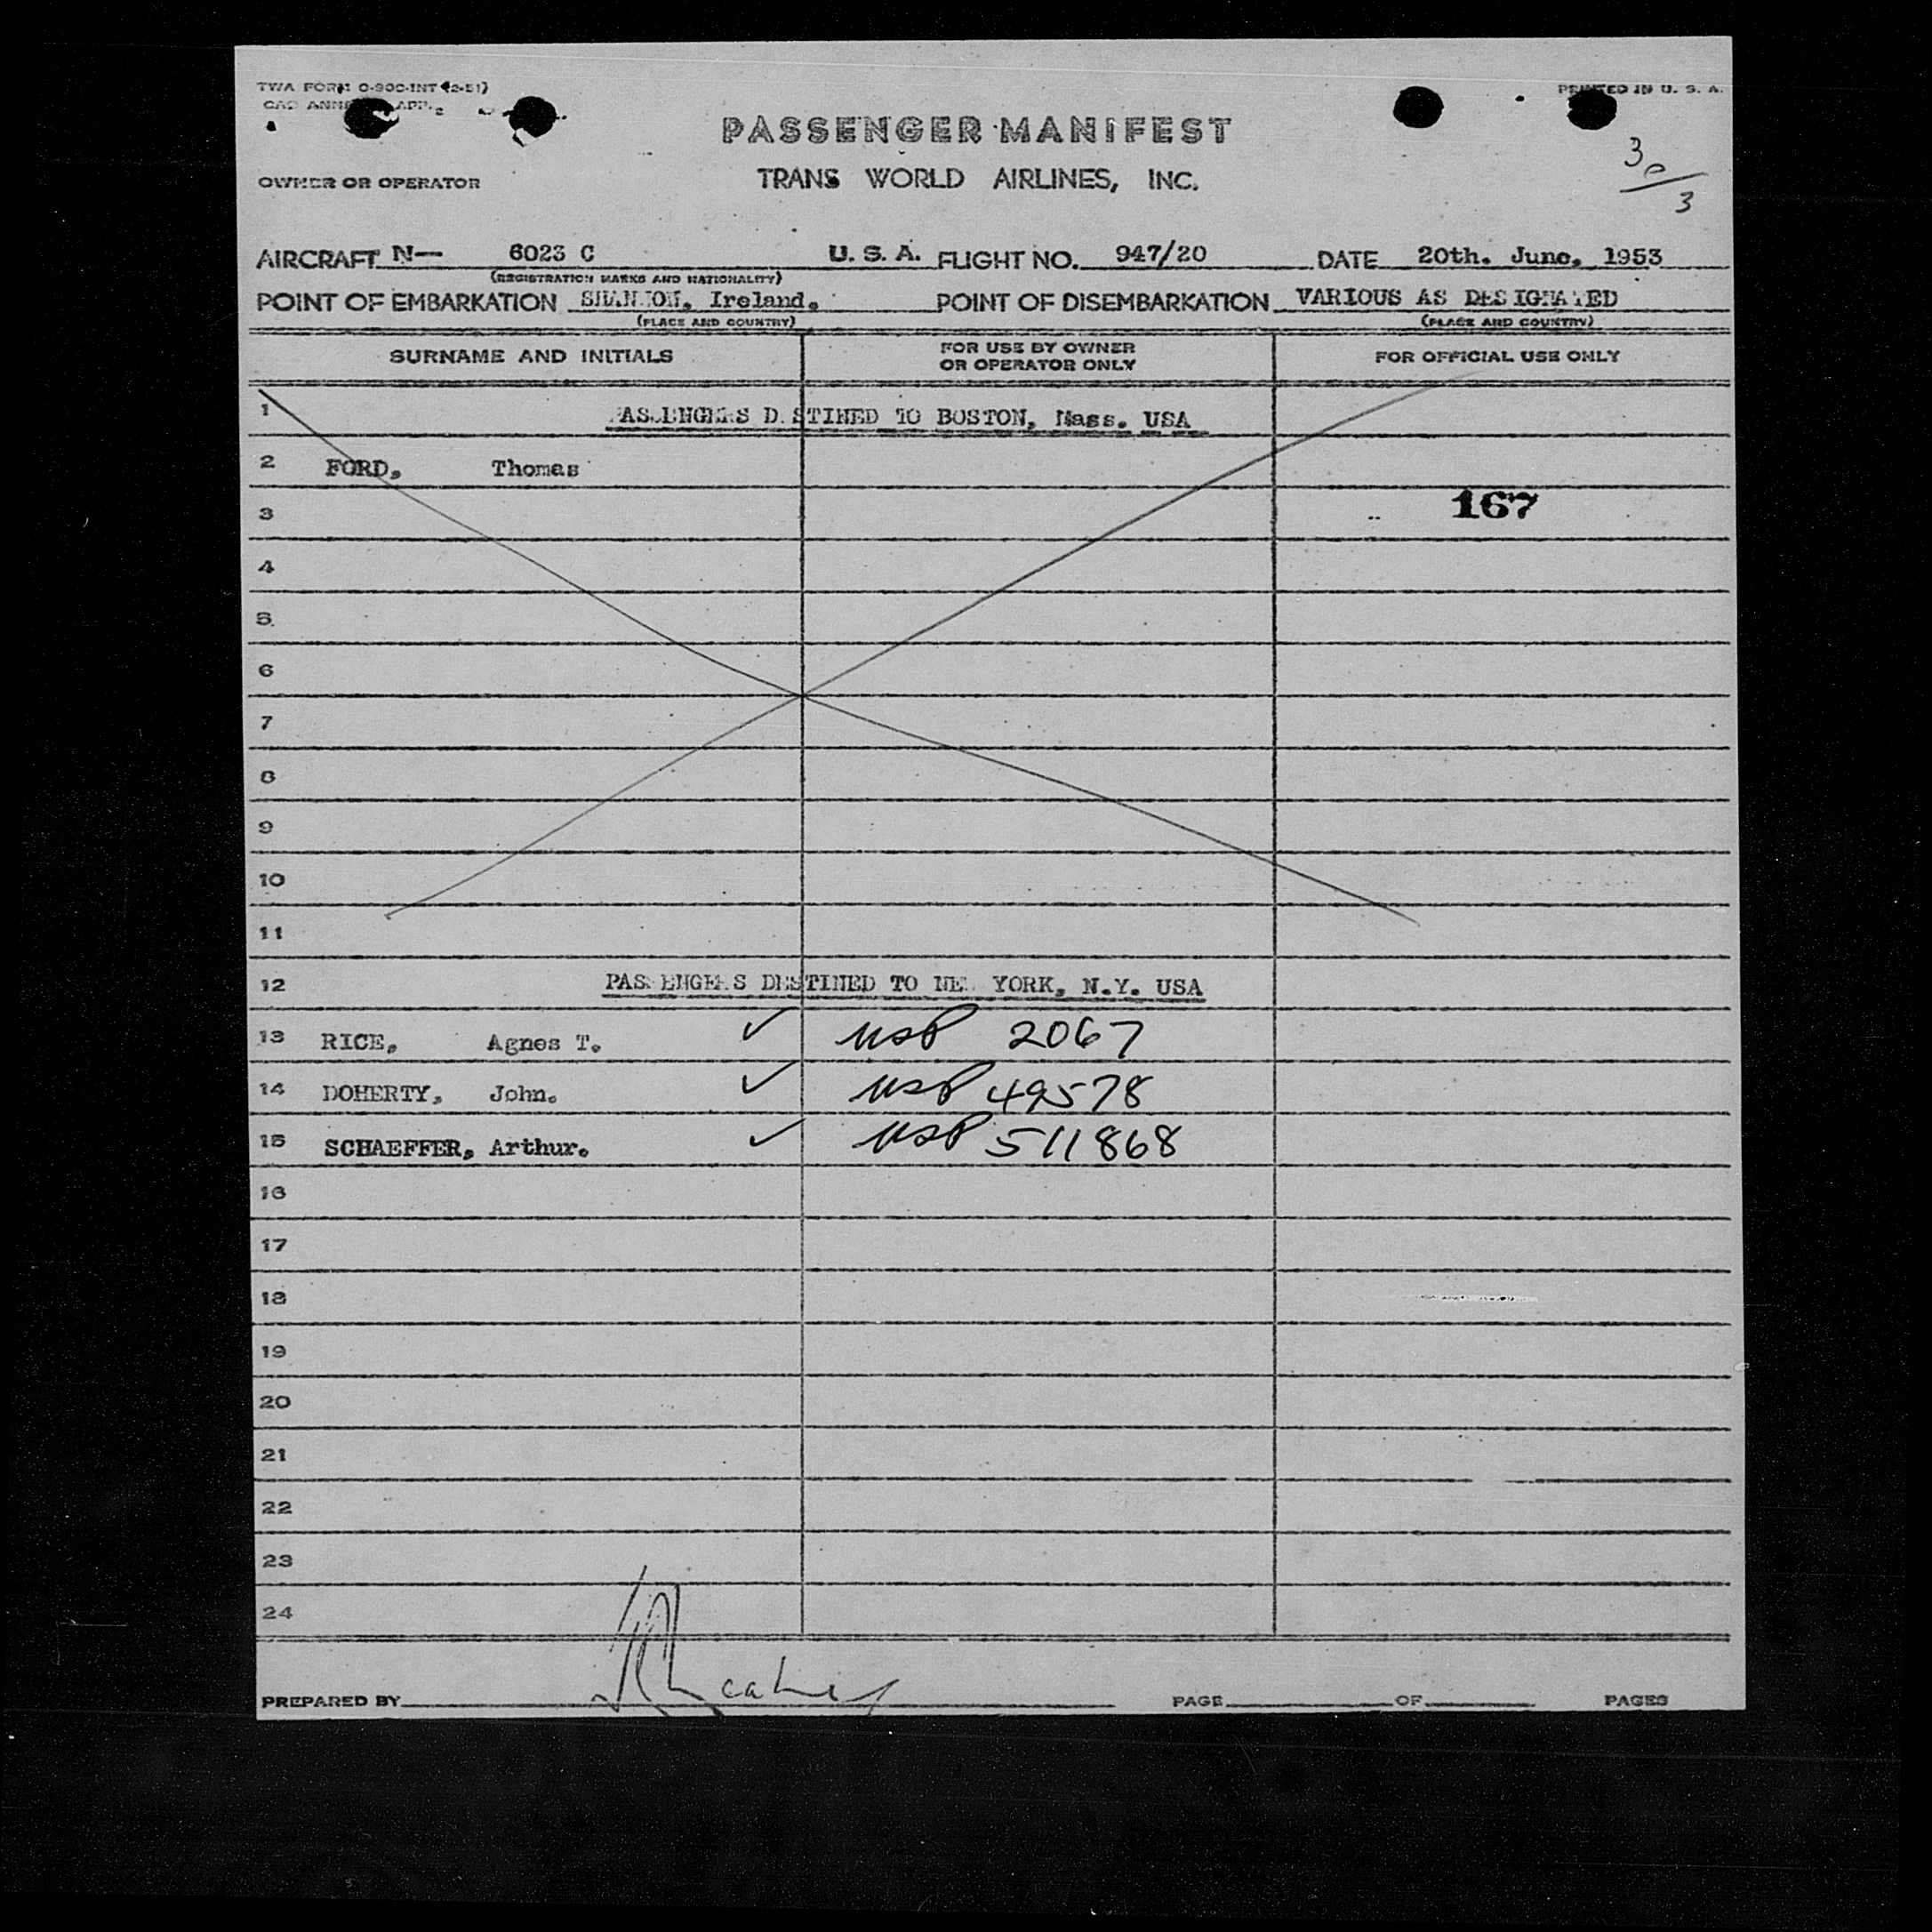 TWA FORM O-900-INT (2-51)
PRINTED IN U. S. A.
PASSENGER MANIFEST
OWNER OR OPERATOR TRANS WORLD AIRLINES, INC.
30/3
AIRCRAFT N— 6023 C U. S. A. FLIGHT NO. 947/20 DATE 20th. June. 1953
(REGISTRATION MARKS AND NATIONALITY)
POINT OF EMBARKATION SHANNON, Ireland. POINT OF DISEMBARKATION VARIOUS AS DESIGNATED
(PLACE AND COUNTRY) (PLACE AND COUNTRY)
SURNAME AND INITIALS FOR USE BY OWNER OR OPERATOR ONLY FOR OFFICIAL USE ONLY
1 PASSENGERS DESTINED TO BOSTON, Mass. USA
2 FORD, Thomas
3 167
4
5
6
7
8
9
10
11
12 PASSENGERS DESTINED TO NEW YORK, N.Y. USA
13 RICE, Agnes T. ✓ USP 2067
14 DOHERTY, John. ✓ USP 49578
15 SCHAEFFER, Arthur. ✓ USP 511868
16
17
18
19
20
21
22
23
24
PREPARED BY PAGE OF PAGES